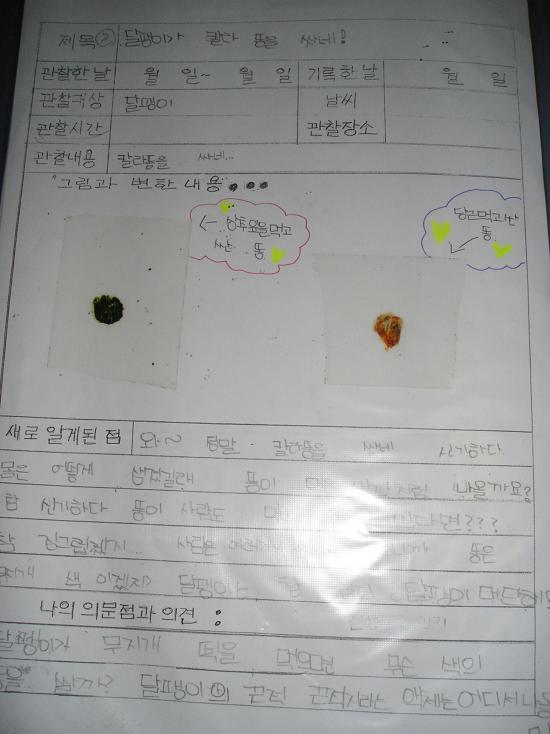 제목② 달팽이가 칼라 똥을 싸네!
관찰한 날 월 일~ 월 일 기록한 날 월 일
관찰대상 달팽이 날씨
관찰시간 관찰장소
관찰내용 칼라똥을 싸네...
"그림과 변한 내용●●●
← 상추잎을먹고
싼 똥
당근먹고싼
똥
새로 알게된 점 와~ 정말 칼라똥을 싸네 신기하다
어떻게 생겼길래 똥이 나올까요?
참 신기하다 똥이 사람도 다면???
참 징그럽겠지... 사람은 똥은
색 이겠지? 달팽이 달팽이 대단해
나의 의문점과 의견 :
달팽이가 무지개 떡을 먹으면 무슨 색의
똥을 쌀까? 달팽이의 끈적 끈적거리는 액체는어디서나올